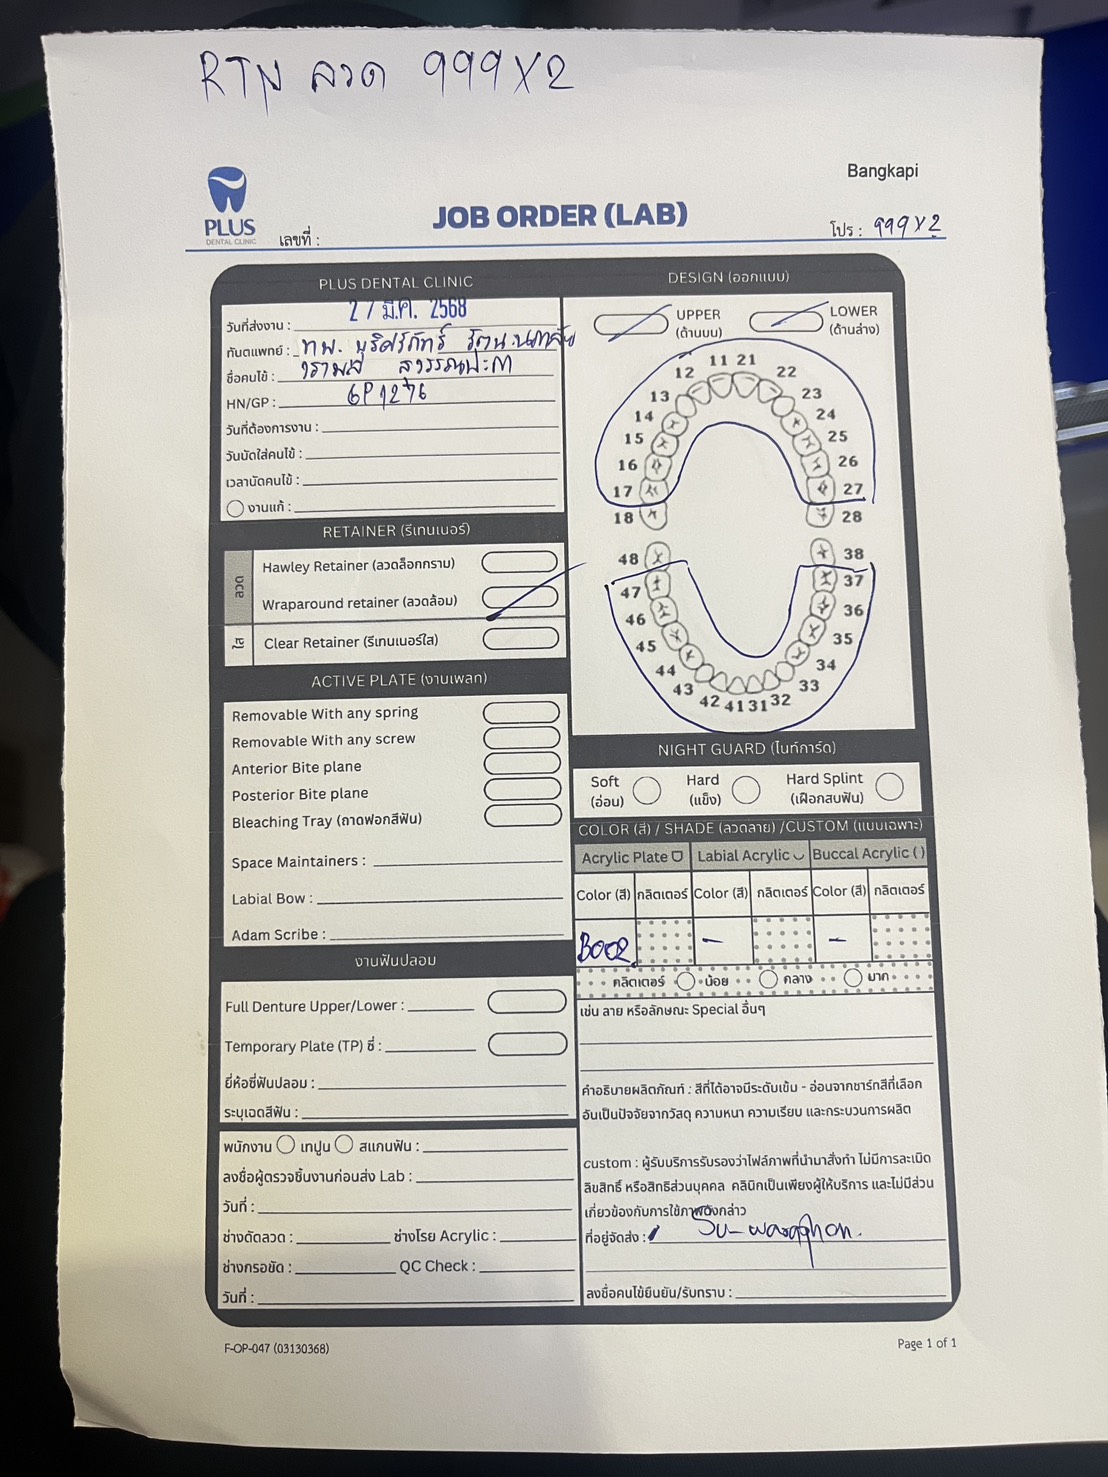 RTN ลวด 999X2
Bangkapi
PLUS
DENTAL CLINIC
เลขที่ :
JOB ORDER (LAB)
โปร : 999X2
PLUS DENTAL CLINIC
วันที่ส่งงาน : 27 มี.ค. 2568
ทันตแพทย์ : ทพ.
ชื่อคนไข้ :
HN/GP : GP1276
วันที่ต้องการงาน :
วันนัดใส่คนไข้ :
เวลานัดคนไข้ :
งานแก้ :
RETAINER (รีเทนเนอร์)
ลวด
Hawley Retainer (ลวดล็อกกราม)
Wraparound retainer (ลวดล้อม)
ใส
Clear Retainer (รีเทนเนอร์ใส)
ACTIVE PLATE (งานเพลท)
Removable With any spring
Removable With any screw
Anterior Bite plane
Posterior Bite plane
Bleaching Tray (ถาดฟอกสีฟัน)
Space Maintainers :
Labial Bow :
Adam Scribe :
งานฟันปลอม
Full Denture Upper/Lower :
Temporary Plate (TP) ซี่ :
ยี่ห้อซี่ฟันปลอม :
ระบุเฉดสีฟัน :
พนักงาน เทปูน สแกนฟัน :
ลงชื่อผู้ตรวจชิ้นงานก่อนส่ง Lab :
วันที่ :
ช่างดัดลวด : ช่างโรย Acrylic :
ช่างกรอขัด : QC Check :
วันที่ :
DESIGN (ออกแบบ)
UPPER
(ด้านบน)
LOWER
(ด้านล่าง)
11 21
12 22
13 23
14 24
15 25
16 26
17 27
18 28
48 38
47 37
46 36
45 35
44 34
43 33
42 41 31 32
NIGHT GUARD (ไนท์การ์ด)
Soft
(อ่อน)
Hard
(แข็ง)
Hard Splint
(เฝือกสบฟัน)
COLOR (สี) / SHADE (ลวดลาย) /CUSTOM (แบบเฉพาะ)
Acrylic Plate Labial Acrylic Buccal Acrylic ( )
Color (สี) กลิตเตอร์ Color (สี) กลิตเตอร์ Color (สี) กลิตเตอร์
B002 - -
กลิตเตอร์ น้อย กลาง มาก
เช่น ลาย หรือลักษณะ Special อื่นๆ
คำอธิบายผลิตภัณฑ์ : สีที่ได้อาจมีระดับเข้ม - อ่อนจากชาร์ทสีที่เลือก
อันเป็นปัจจัยจากวัสดุ ความหนา ความเรียบ และกระบวนการผลิต
custom : ผู้รับบริการรับรองว่าไฟล์ภาพที่นำมาสั่งทำ ไม่มีการละเมิด
ลิขสิทธิ์ หรือสิทธิส่วนบุคคล คลินิกเป็นเพียงผู้ให้บริการ และไม่มีส่วน
เกี่ยวข้องกับการใช้ภาพดังกล่าว
ที่อยู่จัดส่ง :
ลงชื่อคนไข้ยืนยัน/รับทราบ :
F-OP-047 (03130368)
Page 1 of 1